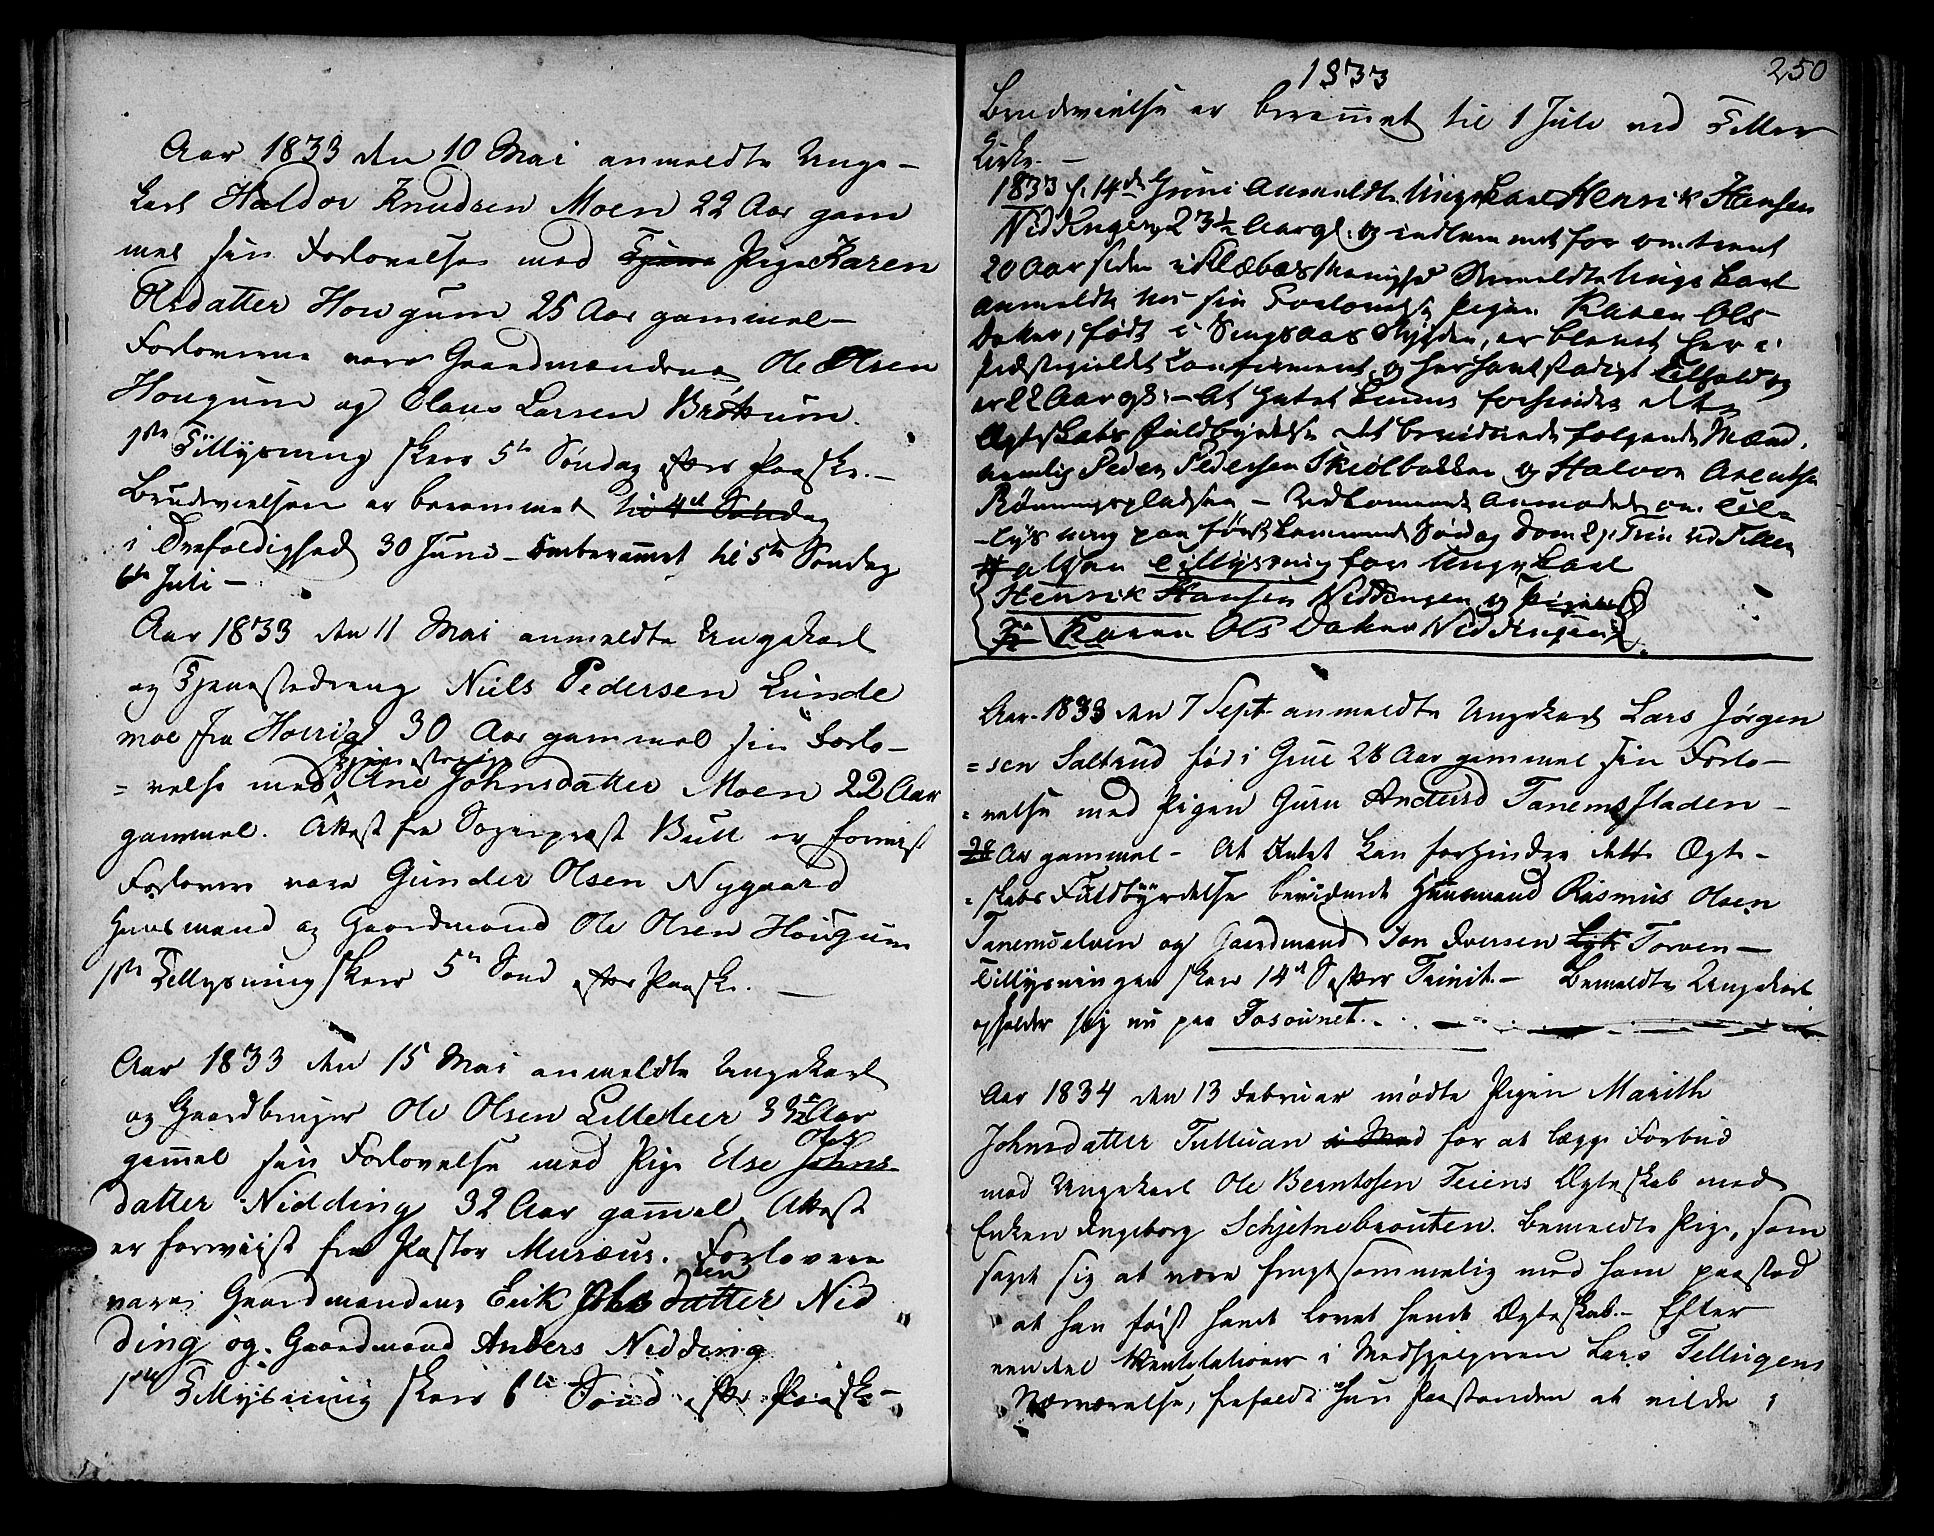 Aar 1833 den 10 Mai anmeldte Unge-
karl Haldor Knudsen Moen 22 Aar gam
mel sin Forlovelse med Tjene Pige Karen
Olsdatter Hougum 25 Aar gammel-
Forloverne vare Gaardmændene Ole Olsen
Hougum og Claus Larsen Brøttum.
1ste Tillysning skeer 5te Søndag efter Paaske.-
Brudevielsen er berammet til 4de Søndag
i Trefoldighed 30 Juni - Omberam̅et til 5te Søndag
6te Juli -
Aar 1833 den 11 Mai anmeldte Ungekarl
og Tjenestedreng Niels Pedersen Lunde
moe fra Horrig 30 Aar gammel sin Forlo-
= velse med Tjenestepige Ane Johnsdatter Moen 22 Aar
gammel. Attest fra Sognepræst Bull er foreviist
Forlovere vare Gunder Olsen Nygaard
Huusmand og Gaardmand Ole Olsen Hougum
1ste Tillysning skeer 5te Sønd efter Paaske. -
Aar 1833 den 15 Mai anmeldte Ungekarl
og Gaardbruger Ole Olsen Lilleleer 33½ Aar
gam̅el sin Forlovelse med Pige Else Johns Ols
datter Nidding 32 Aar gam̅el Attest
er foreviist fra Pastor Musæus. Forlovere
vare Gaardmændene Erik Johs datter sen Nid
ding og Gaardmand Anders Nidding
1ste Tillysning skeer 6te Sønd efter Paaske-
1833
250
Brudevielse er beram̅et til 1 Juli ved Tiller
Kirke. -
1833 d. 14de Juni Anmeldte Ungekarl Henrik Hansen
Niddingen, 23½ Aar gl. og indlem met for omtrent
20 Aar siden i Klæboe Menighed Anmeldte Ungekarl
anmeldte her sin Forlovelse Pigen Karen Ols
Datter, født i Singsaas Bygden, er blevet her i
Præstegieldet Confirmeret og her havt stadigt Tilhold og
er 22 Aar gl. - At Intet kunne forhindre dette
Ægteskabs Fuldbyrdelse det bevidnede følgende Mænd,
nemlig Peder Pedersen Skiølbakken og Halvor Arentsen
Rønningspladsen - Vedkommende Anmodede om Til-
-lysning paa førstkommende Søndag Dom 2 p. Trin ved Tiller
altsaa Tillysning for Ungekarl
Henrik Hansen Niddingen og Pigen
Karen Ols Datter Niddingen
Aar 1833 den 7 Sept anmeldte Ungekarl Lars Jørgen
= sen Saltrud fød i Grue 28 Aar gammel sin Forlo-
= velse med Pigen Guru Andersd Tanemsfladen -
28 Aar gammel - At Intet kan forhindre dette Ægte-
= skabs Fuldbyrdelse bevidnede Huusmand Rasmus Olsen
Tanemselven og Gaardmand Jon Iversen Torven -
Tillysningen skeer 14de S efter Trinit. - Bemeldte Ungekarl
opholder sig nu paa Fosounet.
Aar 1834 den 13 Februar mødte Pigen Marith
Johnsdatter Tulluan i Med for at lægge Forbud
mod Ungekarl Ole Berntosen Teiens Ægteskab med
Enken Ingeborg Schjetnebrouten. Bemeldte Pige, som
sagde sig at være frugtsommelig med ham paastod
at han først havde lovet hende Ægteskab. - Efter
een deel Ventilationer i Medhjelperen Lars Tellugens
Nærværelse, frafaldt hun Paastanden at vilde